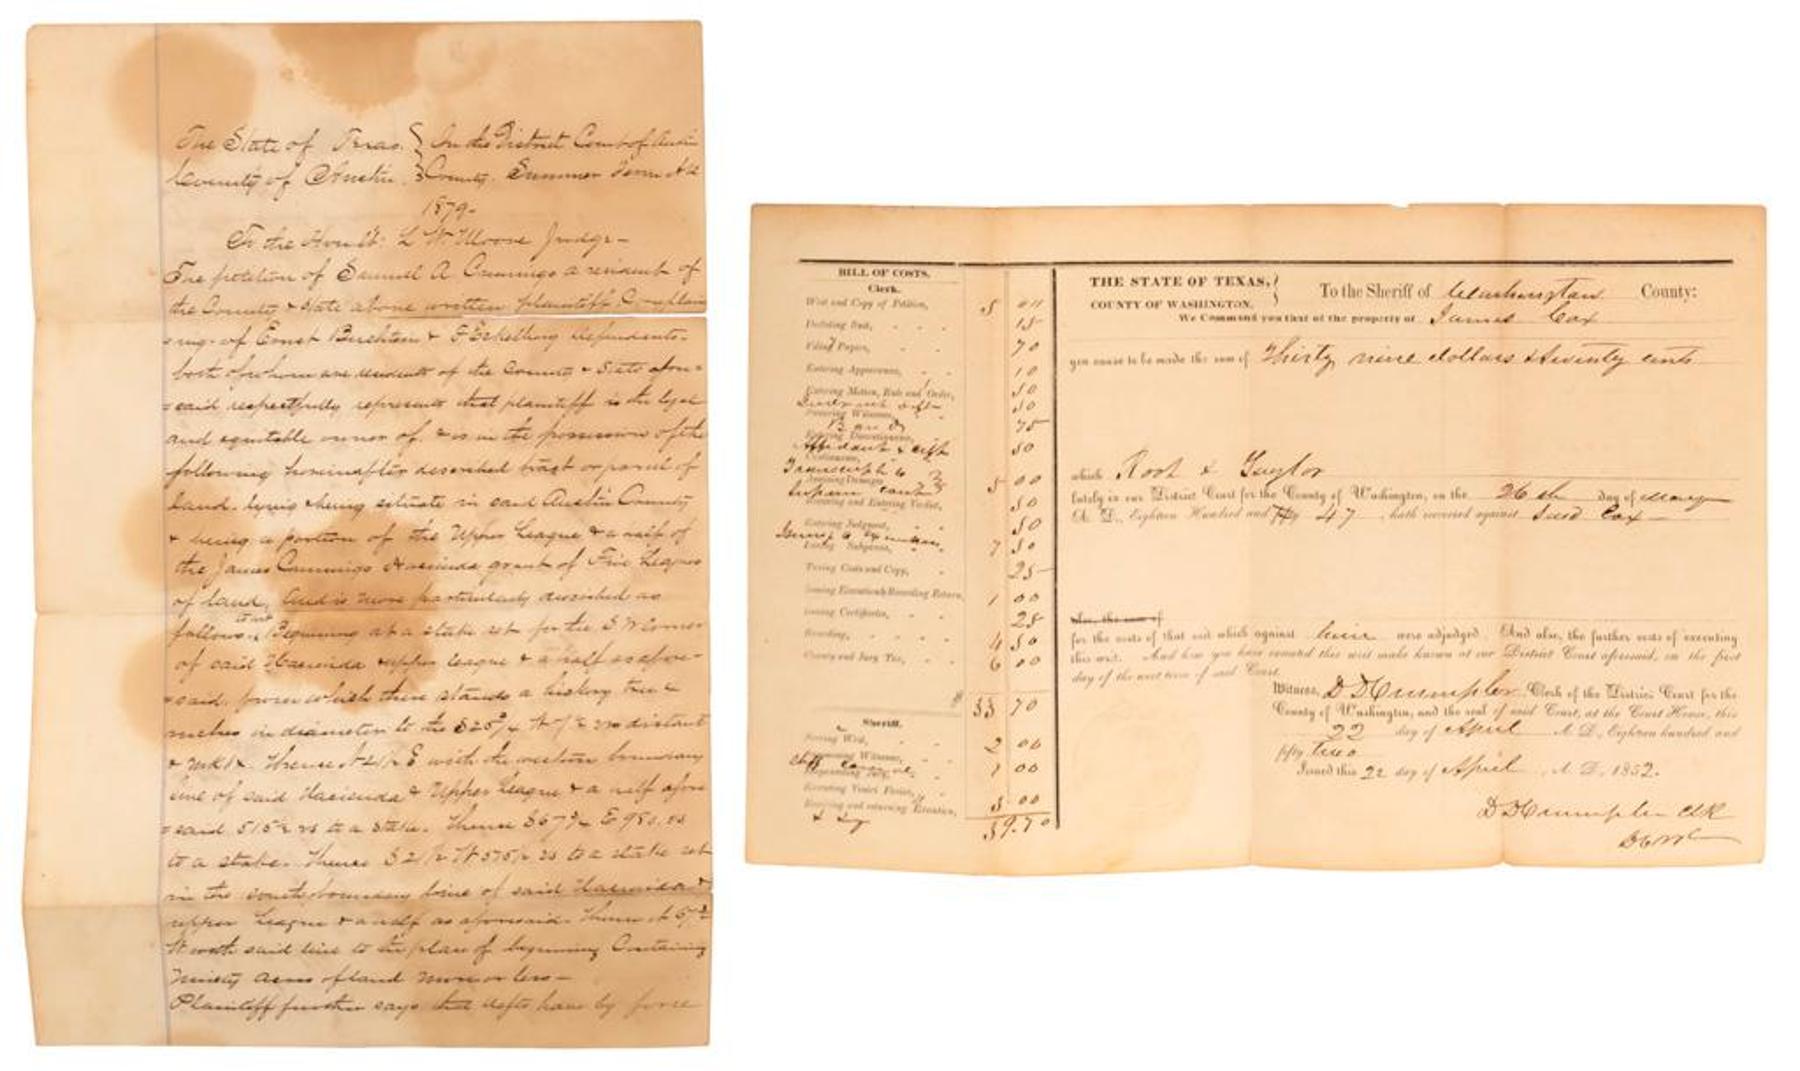 The State of Texas } In the District Court of Austin
County of Austin } County. Summer Term AD
1879-
To the Honble: L W Moore Judge-
The petition of Samuel A Cummings a resident of
the County & State above written plaintiff Complain
=ing- of Ernst & F defendants-
both of whom are residents of the County & State afore=
=said respectfully represents that plaintiff is the legal
and equitable owner of, & is in the possession of the
following hereinafter described tract or parcel of
land. lying & being situate in said Austin County
& being a portion of the Upper League & a half of
the James Cummings Hacienda grant of Five Leagues
of land, and is more particularly described as
follows to wit Beginning at a stake set for the S W Corner
of said Hacienda upper league & a half as afore-
=said. from which there stands a hickory tree
inches in diameter to the W vs distant
& mkd Thence N 21½ E with the western boundary
line of said Hacienda Upper League & a half afore
=said 515½ vs to a stake. Thence E 980 vs
to a stake. Thence S 21½ W 575½ vs to a stake set
in the south boundary line of said Hacienda
upper League & a half as aforesaid. Thence N 67½
W with said line to the place of beginning Containing
Ninety acres of land more or less-
Plaintiff further says that defts have by force
BILL OF COSTS.
Clerk.
Writ and Copy of Petition, 5 00
Docketing Suit, 15
Filing Papers, 70
Entering Appearance, 10
Entering Motion, Rule and Order, 50
Swearing Witness, 50
Bond 75
Entering Discontinuance,
Affidavit & cift 50
Continuance,
Transcript to
Assessing Damages, 5 00
Supreme Court
Receiving and Entering Verdict, 50
Entering Judgment, 50
Issuing Subpœna, 7 50
Taxing Costs and Copy, 25
Issuing Execution & Recording Return, 1 00
Issuing Certificates, 25
Recording, 4 50
County and Jury Tax, 6 00
$ 33 70
Sheriff.
Serving Writ, 2 00
Summoning Witness,
Empanneling Jury, 1 00
Executing Venire Facias,
Levying and returning Execution, 3 00
39.70
THE STATE OF TEXAS, }
COUNTY OF WASHINGTON. }
To the Sheriff of Washington County:
We Command you that of the property of James Cox
you cause to be made the sum of Thirty nine dollars & Seventy cents
which Root & Taylor
lately in our District Court for the County of Washington, on the 26th day of
A. D., Eighteen Hundred and fifty 47, hath recovered against said Cox
also, the sum of
for the costs of that suit which against him were adjudged. And also, the further costs of executing
this writ. And how you have executed this writ make known at our District Court aforesaid, on the first
day of the next term of said Court.
Witness, D D Crumpler Clerk of the District Court for the
County of Washington, and the seal of said Court, at the Court House, this
22 day of April A. D., Eighteen hundred and
fifty two
Issued this 22 day of April, A. D. 1852.
D D Crumpler Clk
D C W C